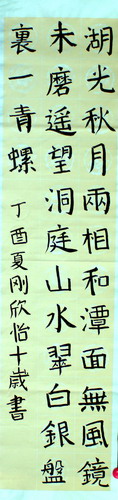 湖光秋月兩相和潭面無風鏡
未磨遥望洞庭山水翠白銀盤
裏一青螺
丁酉夏剛欣怡十歲書